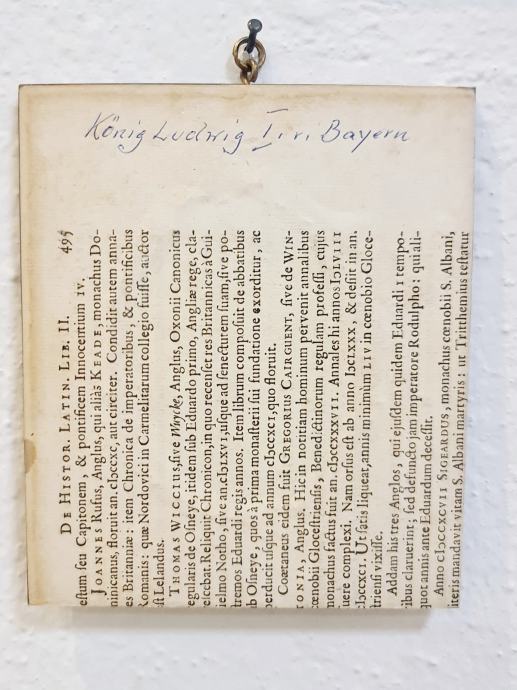 König Ludwig I. v. Bayern
DE HISTOR. LATIN. LIB. II. 495
eſtum ſeu Capitonem, & pontificem Innocentium IV.
JOANNES Rufus, Anglus, qui aliàs KEADE, monachus Do-
minicanus, floruit an. cIɔccxc, aut circiter. Condidit autem anna-
es Britanniæ: item Chronica de Imperatoribus, & pontificibus
Romanis: quæ Nordovici in Carmelitarum collegio fuiſſe, auctor
ſt Lelandus.
THOMAS WICCIUS, ſive Weycke, Anglus, Oxonii Canonicus
regularis de Oſneye, itidem ſub Eduardo primo, Angliæ rege, cla-
reſcebat. Reliquit Chronicon, in quo recenſet res Britannicas à Gui-
ielmo Notho, ſive an. cIɔLXVI, uſque ad ſenectutem ſuam, ſive po-
ſtremos Eduardi regis annos. Item librum compoſuit de abbatibus
ab Oſneye, quos à prima monaſterii ſui fundatione exorditur, ac
perducit uſque ad annum cIɔccxcI, quo floruit.
Coætaneus eidem fuit GREGORIUS CAIRGUENT, ſive de WIN-
TONIA, Anglus. Hic in notitiam hominum pervenit annalibus
cœnobii Gloceſtrienſis, Benedictinorum regulam profeſſi, cujus
monachus factus fuit an. cIɔccxxxvII. Annales hi annos IɔLVIII
fuere complexi. Nam orſus eſt ab anno IɔcLxxx, & deſiit in an.
cIɔccxcI. Ut ſatis liqueat, annis minimum LIV in cœnobio Gloce-
ſtrienſi vixiſſe.
Addam his tres Anglos, qui ejuſdem quidem Eduardi I tempo-
ribus claruerint; ſed defuncto jam imperatore Rodulpho: qui ali-
quot annis ante Eduardum deceſſit.
Anno cIɔccxcvII SIGEARDUS, monachus cœnobii S. Albani,
literis mandavit vitam S. Albani martyris: ut Tritthemius teſtatur